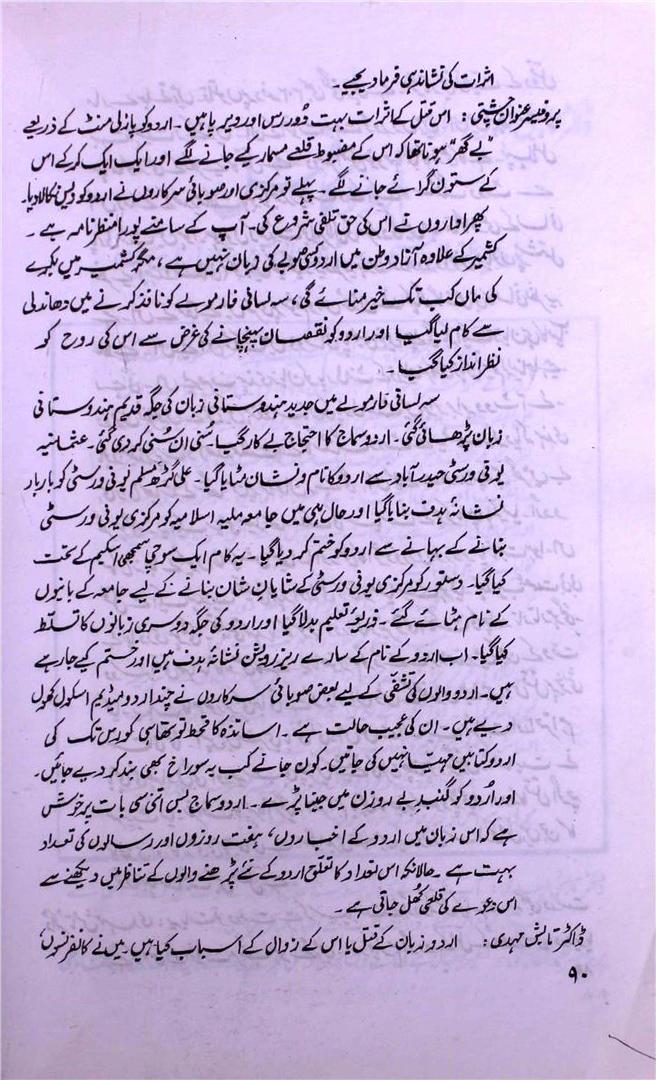 اثرات کی نشاندہی فرما دیجیے۔
پروفیسر عنوان چشتی: اس قتل کے اثرات بہت دُور رس اور دیرپا ہیں۔ اردو کو پارلی منٹ کے ذریعے
"بے گھر" ہونا تھا کہ اس کے مضبوط قلعے مسمار کیے جانے لگے اور ایک ایک کر کے اس
کے ستون گرائے جانے لگے۔ پہلے تو مرکزی اور صوبائی سرکاروں نے اردو کو دیس نکالا دیا۔
پھر اداروں نے اس کی حق تلفی شروع کی۔ آپ کے سامنے پورا منظر نامہ ہے۔
کشمیر کے علاوہ آزاد وطن میں اردو کسی صوبے کی زبان نہیں ہے، مگر کشمیر میں بکرے
کی ماں کب تک خیر منائے گی، سہ لسانی فارمولے کو نافذ کرنے میں دھاندلی
سے کام لیا گیا اور اردو کو نقصان پہنچانے کی غرض سے اس کی روح کو
نظر انداز کیا گیا۔
سہ لسانی فارمولے میں جدید ہندوستانی زبان کی جگہ قدیم ہندوستانی
زبان پڑھائی گئی۔ اردو سماج کا احتجاج بے کار گیا۔ سُنی ان سُنی کر دی گئی۔ عثمانیہ
یونی ورسٹی حیدرآباد سے اردو کا نام و نشان مٹایا گیا۔ علی گڑھ مسلم یونی ورسٹی کو بار بار
نشانۂ ہدف بنایا گیا اور حال ہی میں جامعہ ملیہ اسلامیہ کو مرکزی یونی ورسٹی
بنانے کے بہانے سے اردو کو ختم کر دیا گیا۔ یہ کام ایک سوچی سمجھی اسکیم کے تحت
کیا گیا۔ دستور کو مرکزی یونی ورسٹی کے شایانِ شان بنانے کے لیے جامعہ کے بانیوں
کے نام ہٹائے گئے۔ ذریعۂ تعلیم بدلا گیا اور اردو کی جگہ دوسری زبانوں کا تسلّط
کیا گیا۔ اب اردو کے نام کے سارے ریزرویشن نشانۂ ہدف ہیں اور ختم کیے جا رہے
ہیں۔ اردو والوں کی تشفّی کے لیے بعض صوبائی سرکاروں نے چند اردو میڈیم اسکول کھول
دیے ہیں۔ ان کی عجیب حالت ہے۔ اساتذہ کا قحط تو تھا ہی کورس تک کی
اردو کتابیں مہیّا نہیں کی جاتیں۔ کون جانے کب یہ سوراخ بھی بند کر دیے جائیں۔
اور اُردو کو گنبدِ بے روزن میں جینا پڑے۔ اردو سماج بس اتنی سی بات پر خوش
ہے کہ اس زبان میں اردو کے اخباروں، ہفت روزوں اور رسالوں کی تعداد
بہت ہے۔ حالانکہ اس تعداد کا تعلق اردو کے نئے پڑھنے والوں کے تناظر میں دیکھنے سے
اس دعوے کی قلعی کُھل جاتی ہے۔
ڈاکٹر تابش مہدی: اردو زبان کے قتل یا اس کے زوال کے اسباب کیا ہیں۔ میں نے کانفرنسوں،
۹۰